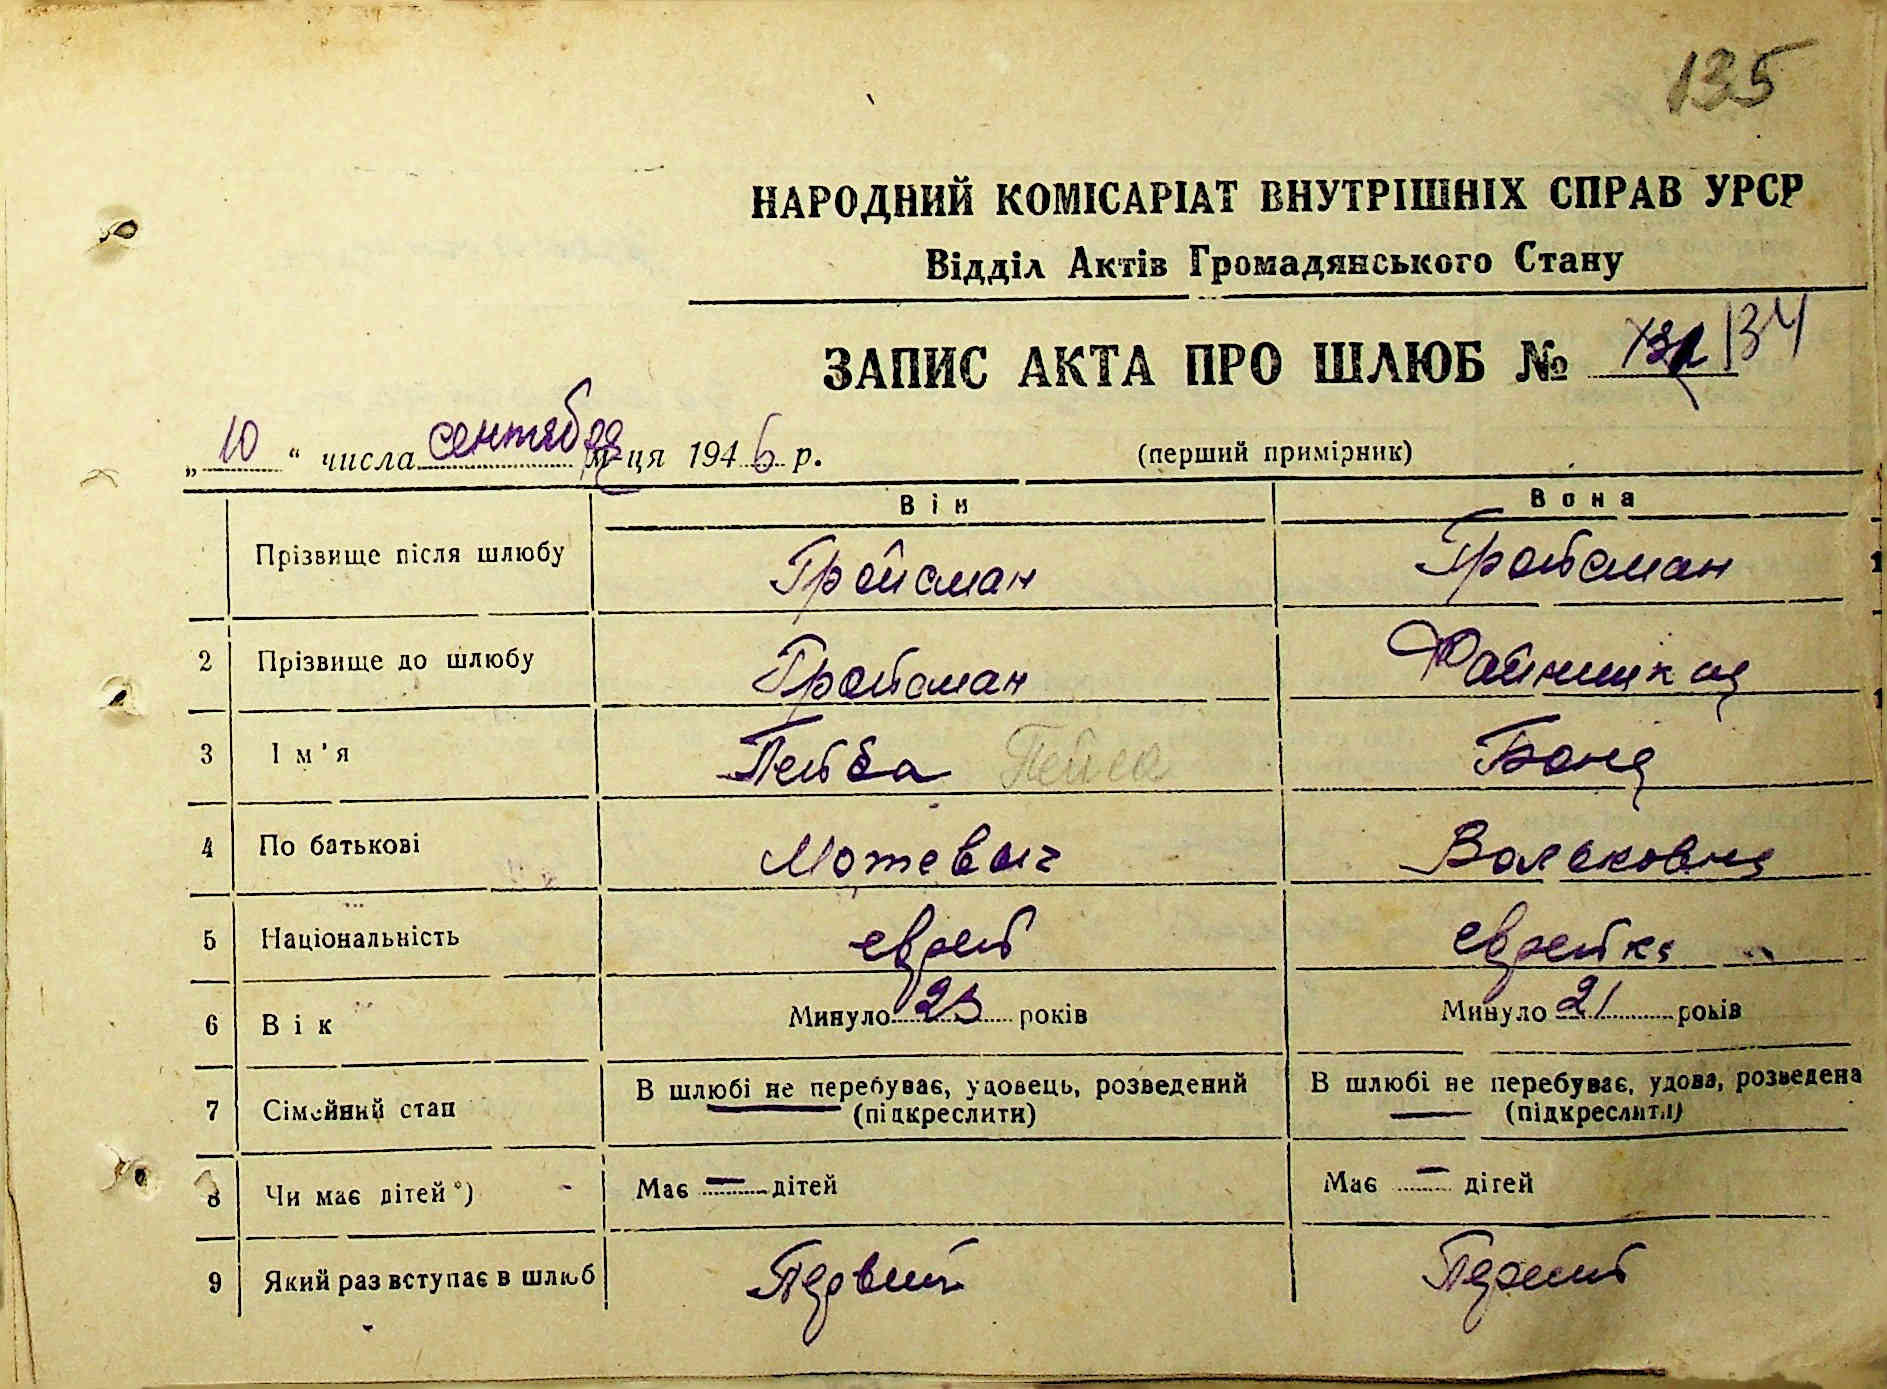 135
НАРОДНИЙ КОМІСАРІАТ ВНУТРІШНІХ СПРАВ УРСР
Відділ Актів Громадянського Стану
ЗАПИС АКТА ПРО ШЛЮБ № 134
„10“ числа сентября м-ця 1946 р. (перший примірник)
Він Вона
Прізвище після шлюбу Гройсман Гройсман
2 Прізвище до шлюбу Гройсман
3 Ім'я Пейса
4 По батькові Мотевич
5 Національність еврей еврейка
6 Вік Минуло 23 років Минуло 21 років
7 Сімейний стан В шлюбі не перебуває, удовець, розведений В шлюбі не перебуває, удова, розведена
(підкреслити) (підкреслити)
8 Чи має дітей*) Має — дітей Має — дітей
9 Який раз вступає в шлюб Первий Первий